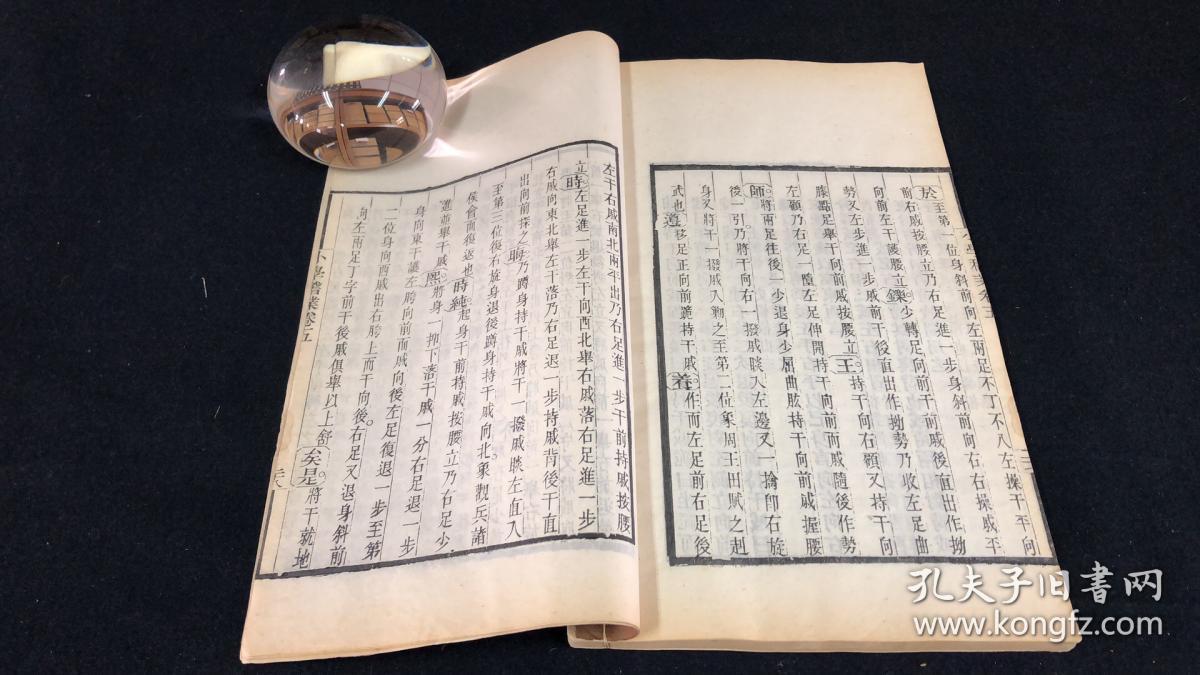 於至第一位身斜前向左兩足不丁不八左操干平向
前右戚按腰立乃右足進一步身斜前向右右操戚平
向前左干護腰立鑠少轉足向前干前戚後直出作拗
勢又左步進一步戚前干後直出作拗勢乃收左足曲
膝點足舉干向前戚按腰立王持干向右顧又持干向
左顧乃右足一墮左足伸開持干向前而戚隨後作勢
師將兩足往後一少退身少屈曲肱持干向前戚握腰
後一引乃將干向右一撥戚睒入左邊又一擒卽右旋
身又將干一撥戚入胸之至第二位象周王田賦之赳
武也遵移足正向前跪持干戚養作而左足前右足後
左干右戚南北兩平出乃右足進一步干前持戚按腰
立時左足進一步左干向西北舉右戚落右足進一步
右戚向東北舉左干落乃右足退一步持戚背後干直
出向前探之晦乃蹲身持干戚將干一撥戚睒左直入
至第三位復右旋身退後蹲身持干戚向北象觀兵諸
侯會而復返也時純起身干前持戚按腰立乃右足少
進並舉干戚熙將身一抑下落干戚一分右足退一步
身向東干護左胯向前而戚向後左足復退一步至第
二位身向西戚出右胯上而干向後右足又退身斜前
向左兩足丁字前干後戚俱舉以上舒矣是將干就地
小學稽業卷五
孔夫子旧书网
www.kongfz.com